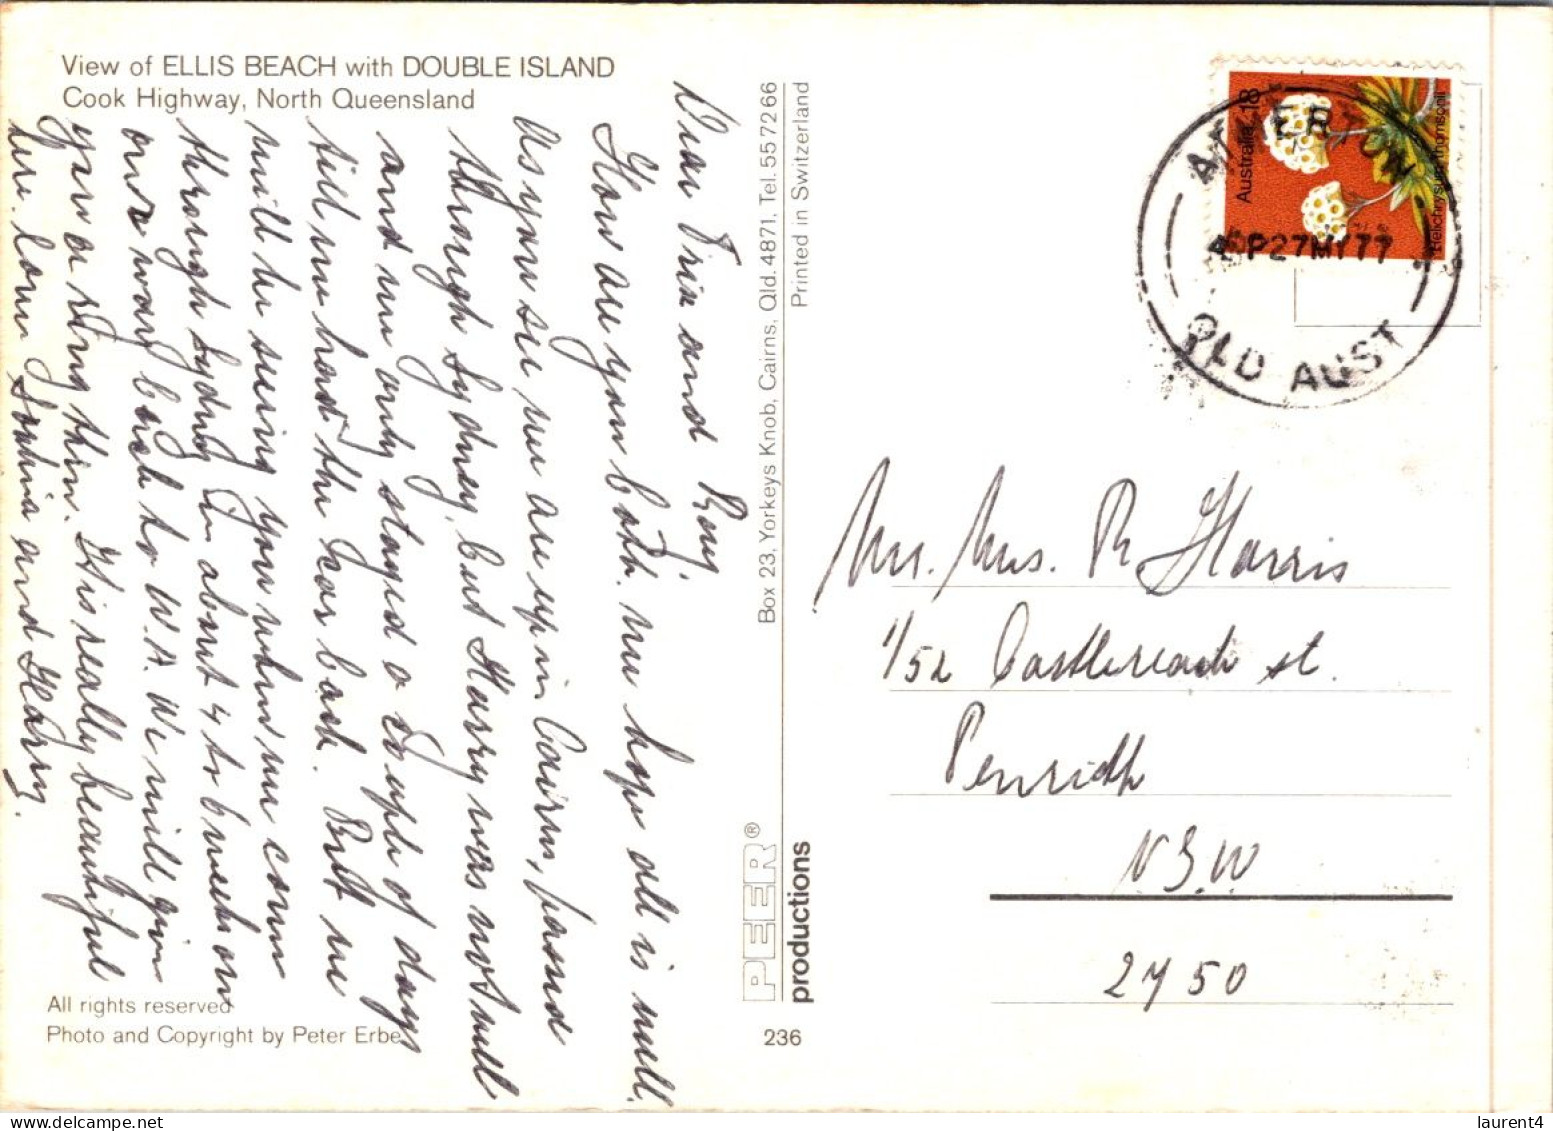 View of ELLIS BEACH with DOUBLE ISLAND
Cook Highway, North Queensland
Dear Trix and Roy.
How are you both. we hope all is well.
As you see we are up in Cairns, passed
through Sydney, but Harry was not well
and we only stayed a couple of days
till we had the car back. But we
will be seeing you when we come
through Sydney in about 4 to 6 weeks on
our way back to W.A. We will give
you a ring then. It is really beautiful
here. love and Harry.
All rights reserved
Photo and Copyright by Peter Erbe
Box 23, Yorkeys Knob, Cairns, Qld. 4871, Tel. 55 72 66
Printed in Switzerland
PEER®
productions
236
Australia 18
Helichrysum thomsonii
ATHERTON
27MY77
QLD AUST
Mr. Mrs. R Harris
1/52 Castlereagh st.
Penrith
N S W
2750
laurent4